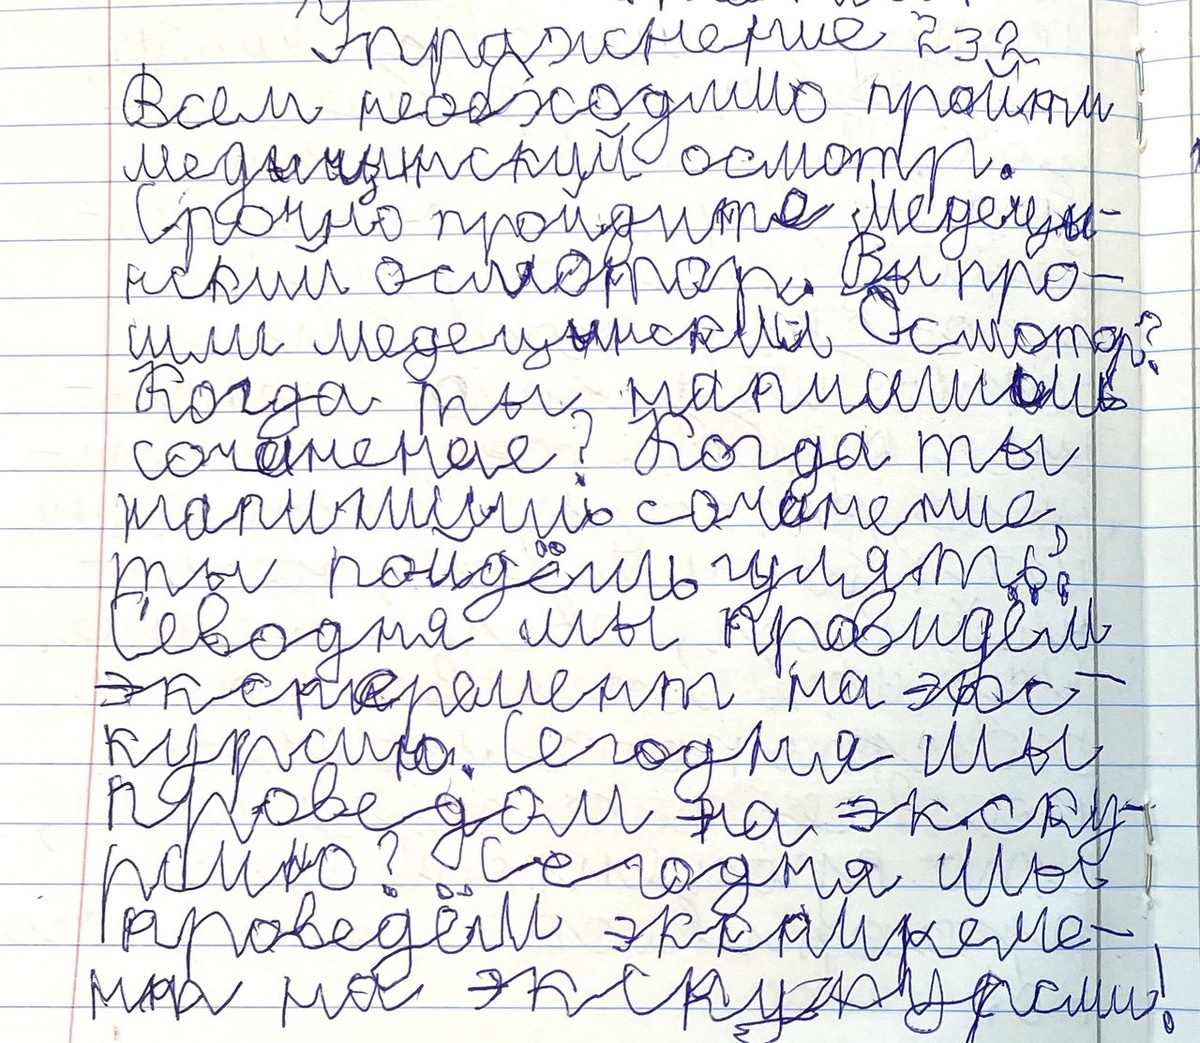 Упражнение 232
Всем необходимо пройти
медицинский осмотр.
Срочно пройдите медецы-
нский осмотор. Вы про-
шли медецинский Осмотор?
Когда ты напишишь
сочаненае? Когда ты
напишишь сочанение,
ты поидёшь гулять?
Севодня мы провидём
эксперемент на экс-
курсию. Сегодня мы
проведом на экску-
рсию? Сегодня мы
проведём
на